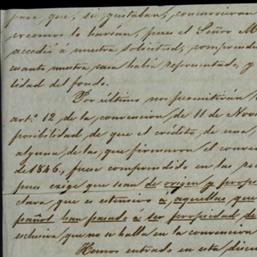 para que, si gustaban, concurrieran
creemos lo harían, pues el Señor M
accedió á nuestra solicitud, comprend
cuanto nuestra casa había representado, y
lidad del fondo.
Por último nos permitirán
art.º 12 de la convencion, de 11 de Nov
posibilidad, de que el crédito, de una
alguna de las, que firmaron el conven
de 1846, fuese comprendido en las re
pues exige que sean de origen y prop
clara, que es estensivo á, aquellas que
pañol han pasado á ser propiedad de
esclusiva que no se halla en la convencion
Hemos entrado en esta discu